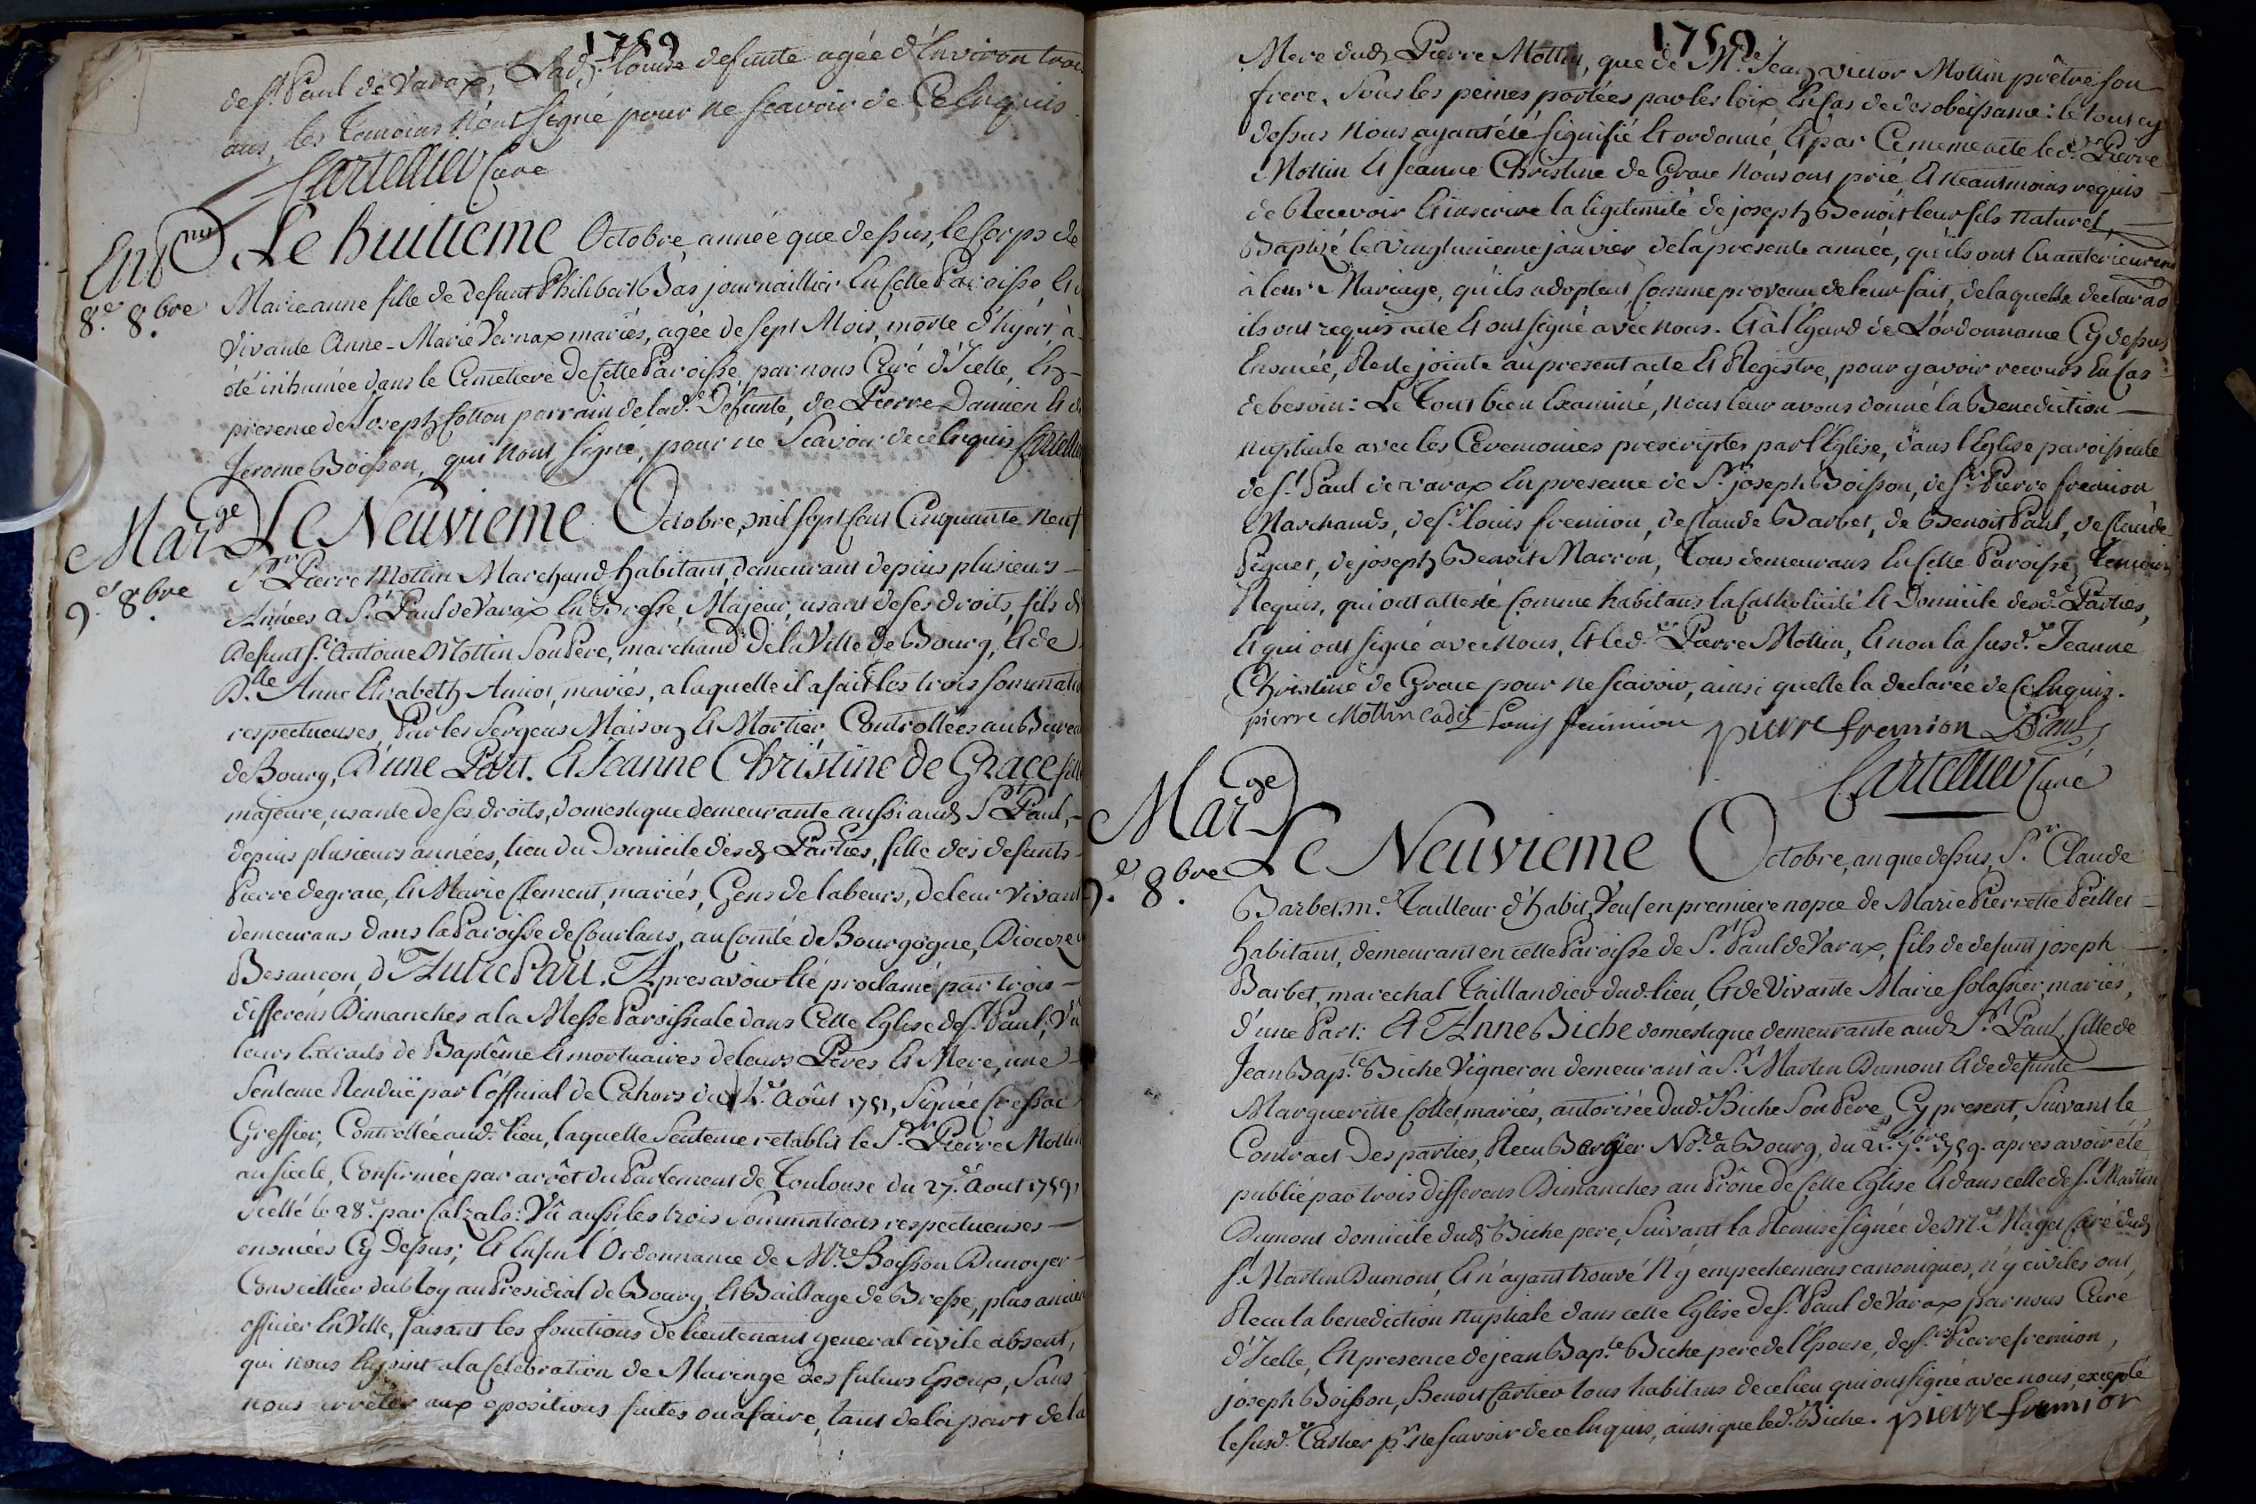 1759
de st. Paul de Varax, Lad.te louise defunte agée d'Environ trois
ans, les temoins n'ont signé pour ne scavoir de Ce Enquis.
Cartellier Curé
Ent.me Le huitieme Octobre année que dessus, le Corps de
8.e 8.bre Marieanne fille de defunt Philibert Bas journaillier En Cette Paroisse, Et de
Vivante Anne-Marie Vernax mariés, agée de sept Mois, morte d'hyer, à
été inhumée dans le Cimetiere de Cette Paroisse, par nous Curé d'Icelle, En
presence de Joseph Cotton parrain de lad.e Defunte, de Pierre Damien Et de
Jerome Boisson, qui n'ont signé, pour ne Scavoir de cé Enquis Cartellier
Mar.ge Le Neuvieme Octobre, mil sept Cent Cinquante Neuf
9.e 8.bre Sr. Pierre Mottin Marchand habitant, demeurant depuis plusieurs
Années a St. Paul de Varax En Bresse, Majeur, usant de ses droits, fils de
Defunt Sr. Antoine Mottin Son Pere, marchand de la Ville de Bourg, Et de
D.lle Anne Elizabeth Amiot, mariés, a laquelle il a fait les trois Sommations
respectueuses, Par les Sergens Maison Et Mortier Controllées au Bureau
de Bourg, D'une Part. Et Jeanne Christine de Grace fille
majeure, usante de ses droits, domestique demeurante aussi aud. St. Paul,
depuis plusieurs années, lieu du Domicile desd. Parties, fille des defunts
Pierre de grace, Et Marie Clement, mariés, Gens de labeurs, de leur vivant
demeurans dans la Paroisse de Courlans, au Comté de Bourgogne, Dioceze de
Besancon, d'Autre Part. Apres avoir été proclamé par trois
differens Dimanches a la Messe Paroissiale dans Cette Eglise de St. Paul; Vu
leurs Extraits de Baptême Et mortuaires de leurs Peres Et Mere, une
Sentence Rendüe par l'official de Cahors du Août 1751, Signée Cressac
Greffier, Controllée aud. lieu, laquelle Sentence retablit le Sr. Pierre Mottin
au siecle, Confirmée par arrêt du Parlement de Toulouse du 27.e Aout 1759,
Scellé le 28.e par Calzals: Vû aussi les trois Sommations respectueuses
enoncées Cy Dessus; Et Enfin l'Ordonnance de Mre. Boisson Dunoyer
Conseillier du Roy au Presidial de Bourg, Et Bailliage de Bresse, plus ancien
officier En Ville, faisant les fonctions de lieutenant general civile absent,
qui nous Enjoint a la Celebration de Mariage des futurs Epoux, Sans
nous arrêter aux opositions faites ou a faire, tant de la part de la
1759
Mere dud. Pierre Mottin, que de M.re Jean victor Mottin prêtre son
frere, Sous les peines portées par les loix En Cas de desobeissance: le tout cy
dessus Nous ayant été signifié Et ordonné, Et par Ce meme acte led.t Sr Pierre
Mottin Et Jeanne Christine de Grace nous ont prié Et neantmoins requis
de Recevoir Et inscrire la légitimité de joseph Benoit leur fils naturel,
Baptizé le vingtunieme janvier de la presente année, qu'ils ont Eu anterieurement
à leur Mariage, qu'ils adoptent Comme provenu de leur fait, de laquelle declarãon
ils ont requis acte Et ont signé avec nous. Et à l'Egard de L'ordonnance Cy dessus
Enoncée, Reste jointe au present acte Et Registre, pour y avoir recours En Cas
de besoin: Le Tout bien Examiné, nous leur avons donné la Benediction
nuptiale avec les Ceremonies prescriptes par l'Eglise, dans l'Eglise paroissiale
de St. Paul de varax En presence de Sr. joseph Boisson, de Sr. Pierre fremion
Marchands, de Sr. louis fremion, de Claude Barbet, de Benoit Paul, de Claude
Piguet, de joseph Benoit Marron, Tous demeurans En Cette Paroisse, Temoins
Requis, qui ont attesté Comme habitans la Catholicité Et Domicile desd.s Parties,
Et qui ont signé avec Nous, Et led. Sr Pierre Mottin, Et non la susd.te Jeanne
Christine de Grace pour ne scavoir, ainsi quelle la declarée de Ce Enquis.
pierre Mottin cadet Louis fremion pierre fremion BPaul
Cartellier Curé
Mar.ge Le Neuvieme Octobre, an que dessus, Sr. Claude
9.e 8.bre Barbet m.e Tailleur d'habit, Veuf en premiere nopce de Marie Pierrette Peillet
habitant, demeurant en cette Paroisse de St. Paul de Varax, fils de defunt joseph
Barbet, marechal Taillandier dud. lieu, Et de Vivante Marie Solassier, mariés,
d'une Part: Et Anne Biche domestique demeurante aud. St. Paul, fille de
Jean Bap.te Biche Vigneron demeurant à St. Martin Dumont Et de defunte
Margueritte Collet, mariés, autorisée dud. Biche Son Pere, Cy present, Suivant le
Contract Des parties, Recu Bergier No.re à Bourg, du 21. 7.bre 1759. apres avoir été
publié par trois differens Dimanches au Prône de Cette Eglise Et dans celle de St. Martin
Dumont domicile dud. Biche pere, Suivant la Remise signée de M.re Nagel Curé dud.
St. Martin Dumont, Et n'ayant trouvé n'y empechemens canoniques, n'y civiles ont,
Recu la benediction nuptiale dans cette Eglise de St. Paul de Varax par nous Curé
d'Icelle, En presence de jean Bap.te Biche pere de l'Epouse, de Sr. Pierre fremion,
joseph Boisson, Benoit Cartier tous habitans de ce lieu qui ont signé avec nous, excepté
le susd. Cartier pr. ne scavoir de ce Enquis, ainsi que led. Biche. pierre fremion